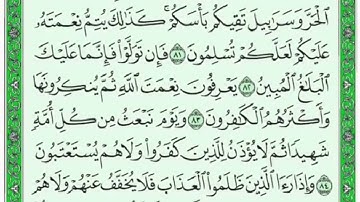 ٱلْحَرَّ وَسَرَٰبِيلَ تَقِيكُم بَأْسَكُمْ ۚ كَذَٰلِكَ يُتِمُّ نِعْمَتَهُۥ
عَلَيْكُمْ لَعَلَّكُمْ تُسْلِمُونَ ٨١ فَإِن تَوَلَّوْا۟ فَإِنَّمَا عَلَيْكَ
ٱلْبَلَٰغُ ٱلْمُبِينُ ٨٢ يَعْرِفُونَ نِعْمَتَ ٱللَّهِ ثُمَّ يُنكِرُونَهَا
وَأَكْثَرُهُمُ ٱلْكَٰفِرُونَ ٨٣ وَيَوْمَ نَبْعَثُ مِن كُلِّ أُمَّةٍ
شَهِيدًا ثُمَّ لَا يُؤْذَنُ لِلَّذِينَ كَفَرُوا۟ وَلَا هُمْ يُسْتَعْتَبُونَ
٨٤ وَإِذَا رَءَا ٱلَّذِينَ ظَلَمُوا۟ ٱلْعَذَابَ فَلَا يُخَفَّفُ عَنْهُمْ وَلَا هُمْ